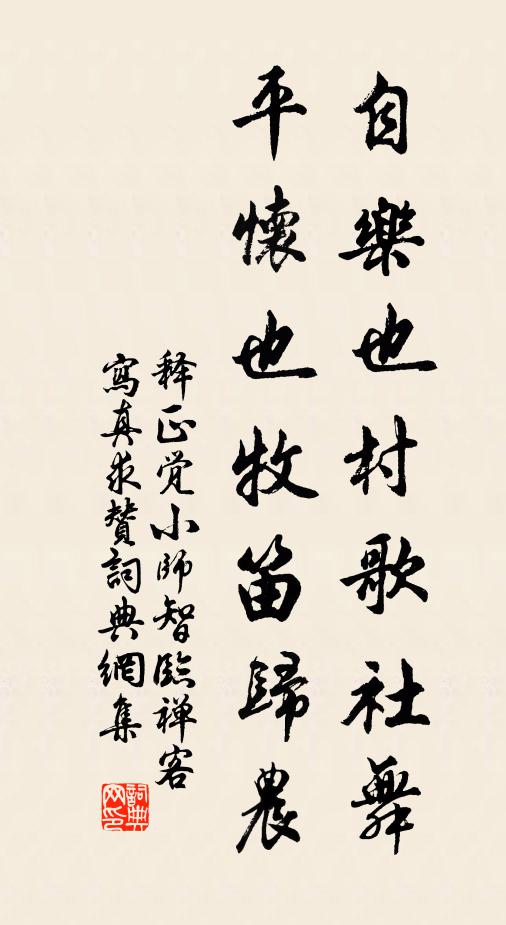 自樂也村歌社舞
平懷也牧笛歸農
释正觉小師智臨禅客
寫真求贊詞典網集
詞典網印